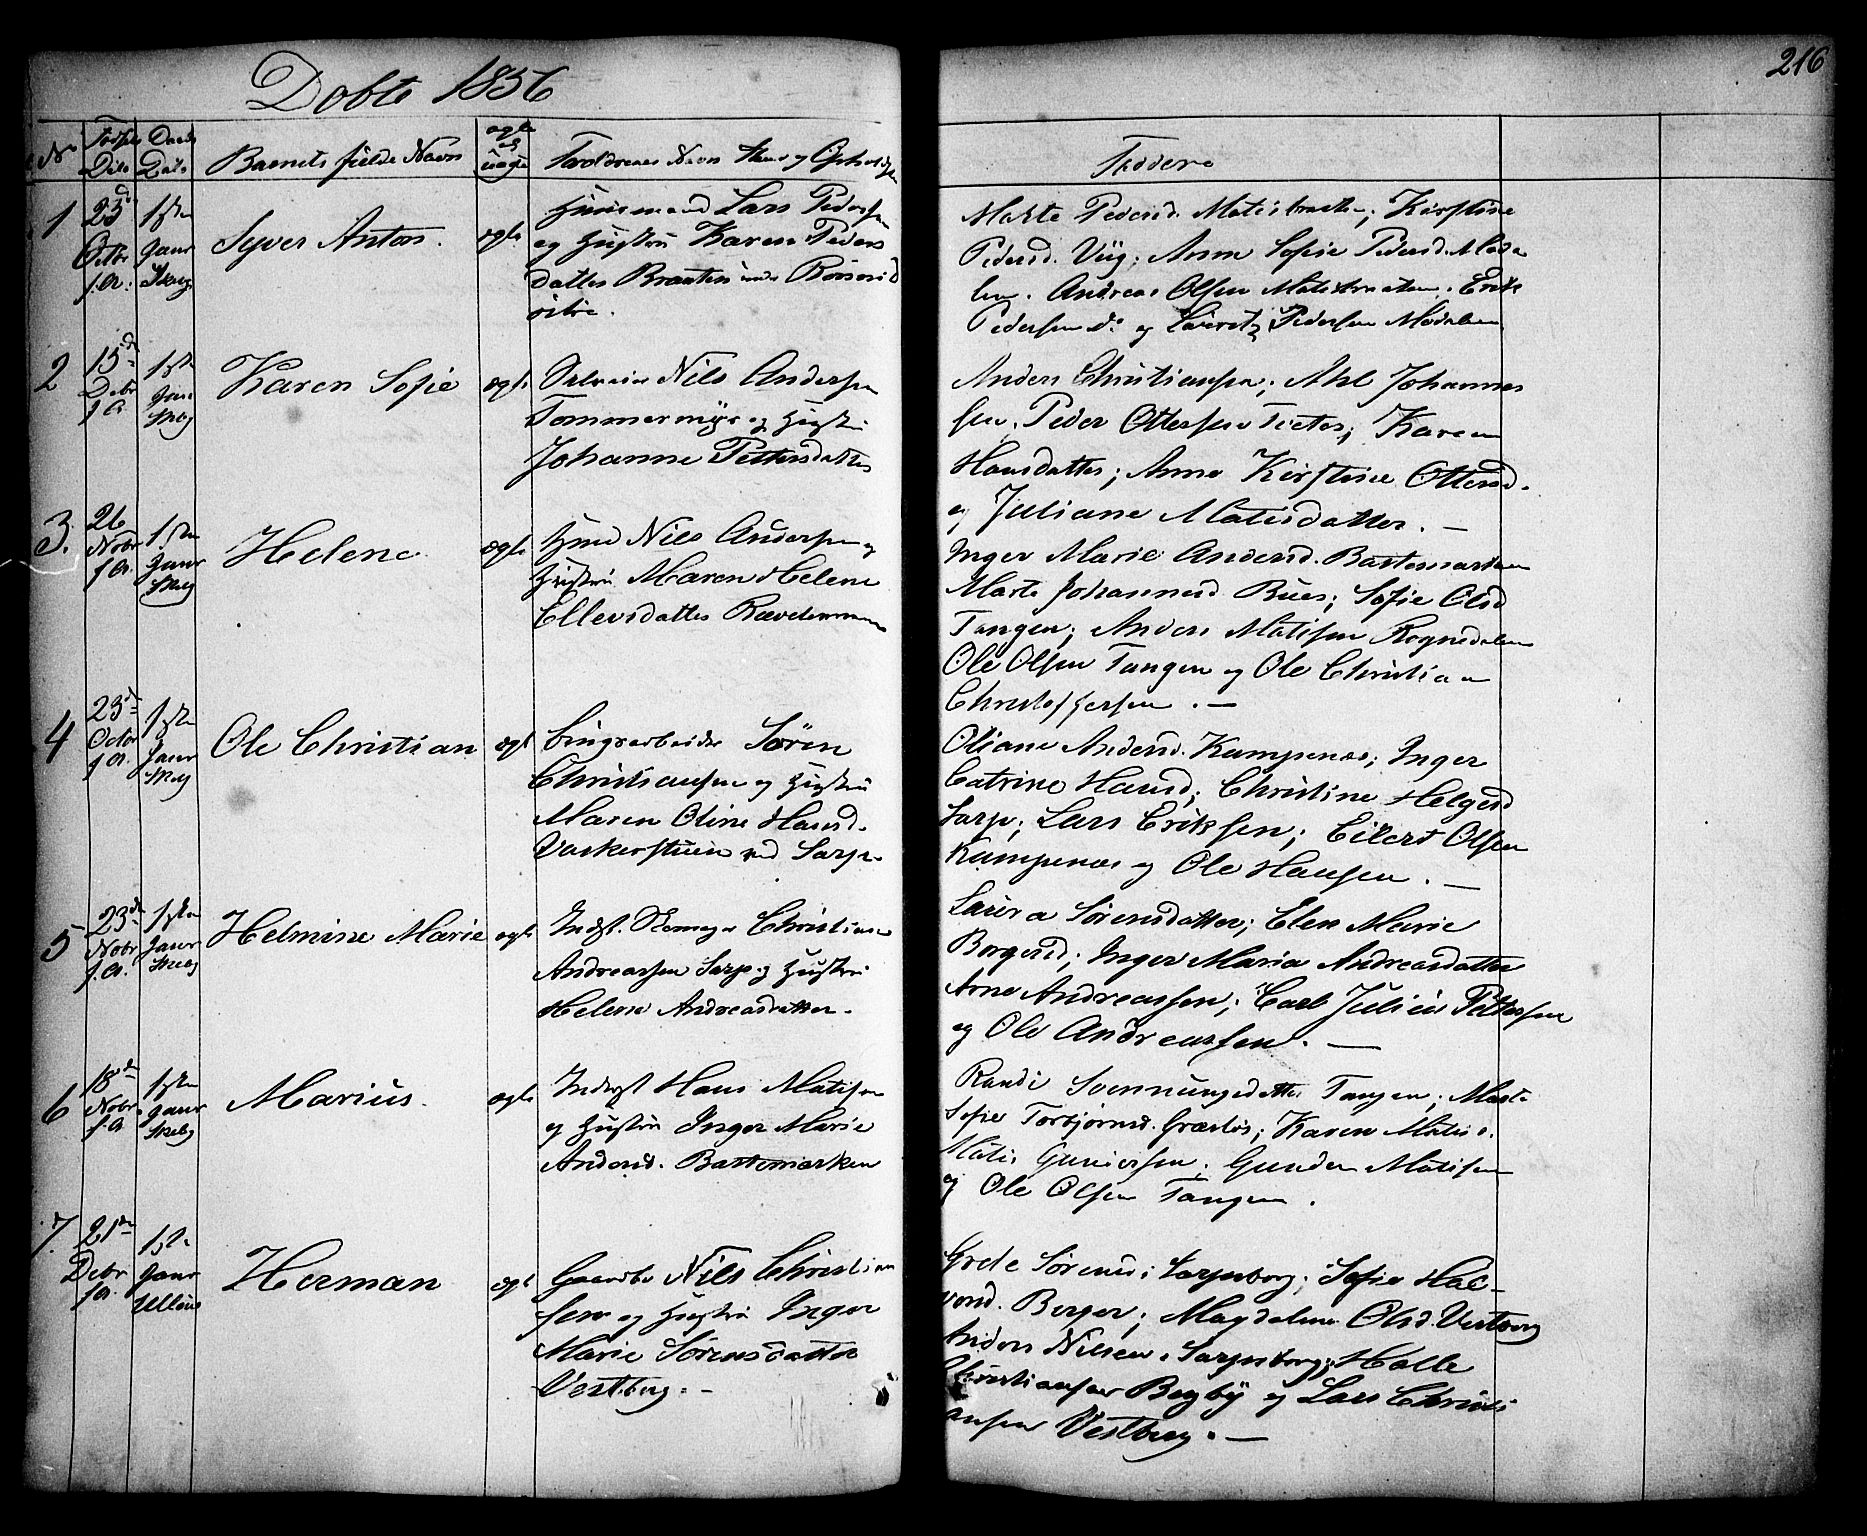 Döbte 1856
216
No Fødsels Dato Daabs Dato Barnets fulde Navn ægte el uægte Forældrenes Navn Stand og Opholdssted
Faddere
1 23d Octbr f. A. 1ste Janr Skeb. Syver Anton. ægte
Huusmand Lars Pedersen
og Hustru Karen Peders
datter Braaten under
östre.
Marte Pedersd. Kirstine
Pedersd. Viig; Anne Sofie Pedersd. Moda
len. Andreas Olsen Erik
Pedersen do og Lauritz Pedersen Modalen
2 15de Debr f A 1ste Janr Skeb Karen Sofie ægte
Nils Andersen
Tommermyr og Hustru
Johanne Pettersdatter
Anders Christiansen; Axl Johannes
sen. Peder Ottersen Karen
Hansdatter; Anne Kirstine Ottersd.
og Juliane Matisdatter. —
3. 26 Nobr f A. 1ste Janr Skeb Helene ægte
Hmd Nils Andersen og
Hustru Maren Helene
Ellevsdatter
Inger Marie Andersd. Bastemarken
Marte Johannesd Buer; Sofie Olsd
Tangen; Anders Matisen Rognedalen
Ole Olsen Tangen og Ole Christian
Christoffersen. —
4 23de Octbr f A. 1ste Janr Skeb Ole Christian ægte
Brugsarbeider Sören
Christiansen og Hustru
Maren Oline Hansd.
Vaskerstuen ved Sarp.
Oliane Andersd. Kampenæs; Inger
Catrine Hansd; Christine Helgesd
Sarp; Lars Eriksen; Eilert Olsen
Kampenæs og Ole Hansen. —
5 23de Nobr f. A. 1ste Janr Skeb Helmine Marie ægte
Indst. Christian
Andreassen Sarp og Hustru
Helene Andreasdatter.
Laura Sørensdatter; Elen Marie
Borgersd; Inger Maria Andreasdatter
Arne Andreassen; Carl Julius Pettersen
og Ole Andreassen. —
6 18de Nobr f A 1ste Janr Skeb Marius. ægte
Inderst Hans Matisen
og Hustru Inger Marie
Andersd. Bastemarken
Randi Svennungsdatter Tangen; Marte
Sofie Torbjörnsd. Græslös; Karen Matisd.
Matis Gundersen; Gunder Matisen
og Ole Olsen Tangen.
7. 21de Debr f A. 1ste Janr Ulleröe Herman ægte
Gaardbr Nils Christian
sen og Hustru Inger
Marie Sørensdatter
Vestberg. —
Grete Sørensd; Sarpsborg; Sofie Hal-
vorsd. Berger; Magdalene Olsd. Vestberg
Anders Nilsen. Sarpsborg; Halle
Christiansen Bogby og Lars Christi
ansen Vestberg. —